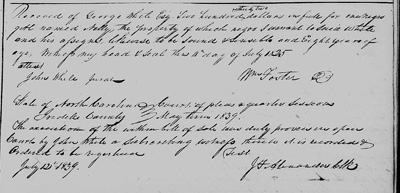 thirty two
Received of George White Esq Two Hundred dollars in full for one negro
girl named Netty, the property of which negro I warrant to said White
and his assigns, likewise to be sound & sensible and Eight years of
age Witness my hand & seal this 11th day of July 1825
attest
John White Jurat Wm Foster
State of North Carolina Court of pleas & quarter sessions
Iredell County May term 1839.
The execution of the within bill of sale was duly proven in open
Court by John White a Subscribing witness thereto it is recorded &
Ordered to be registered Test
July 12th 1839. J. H. Alexander Clk